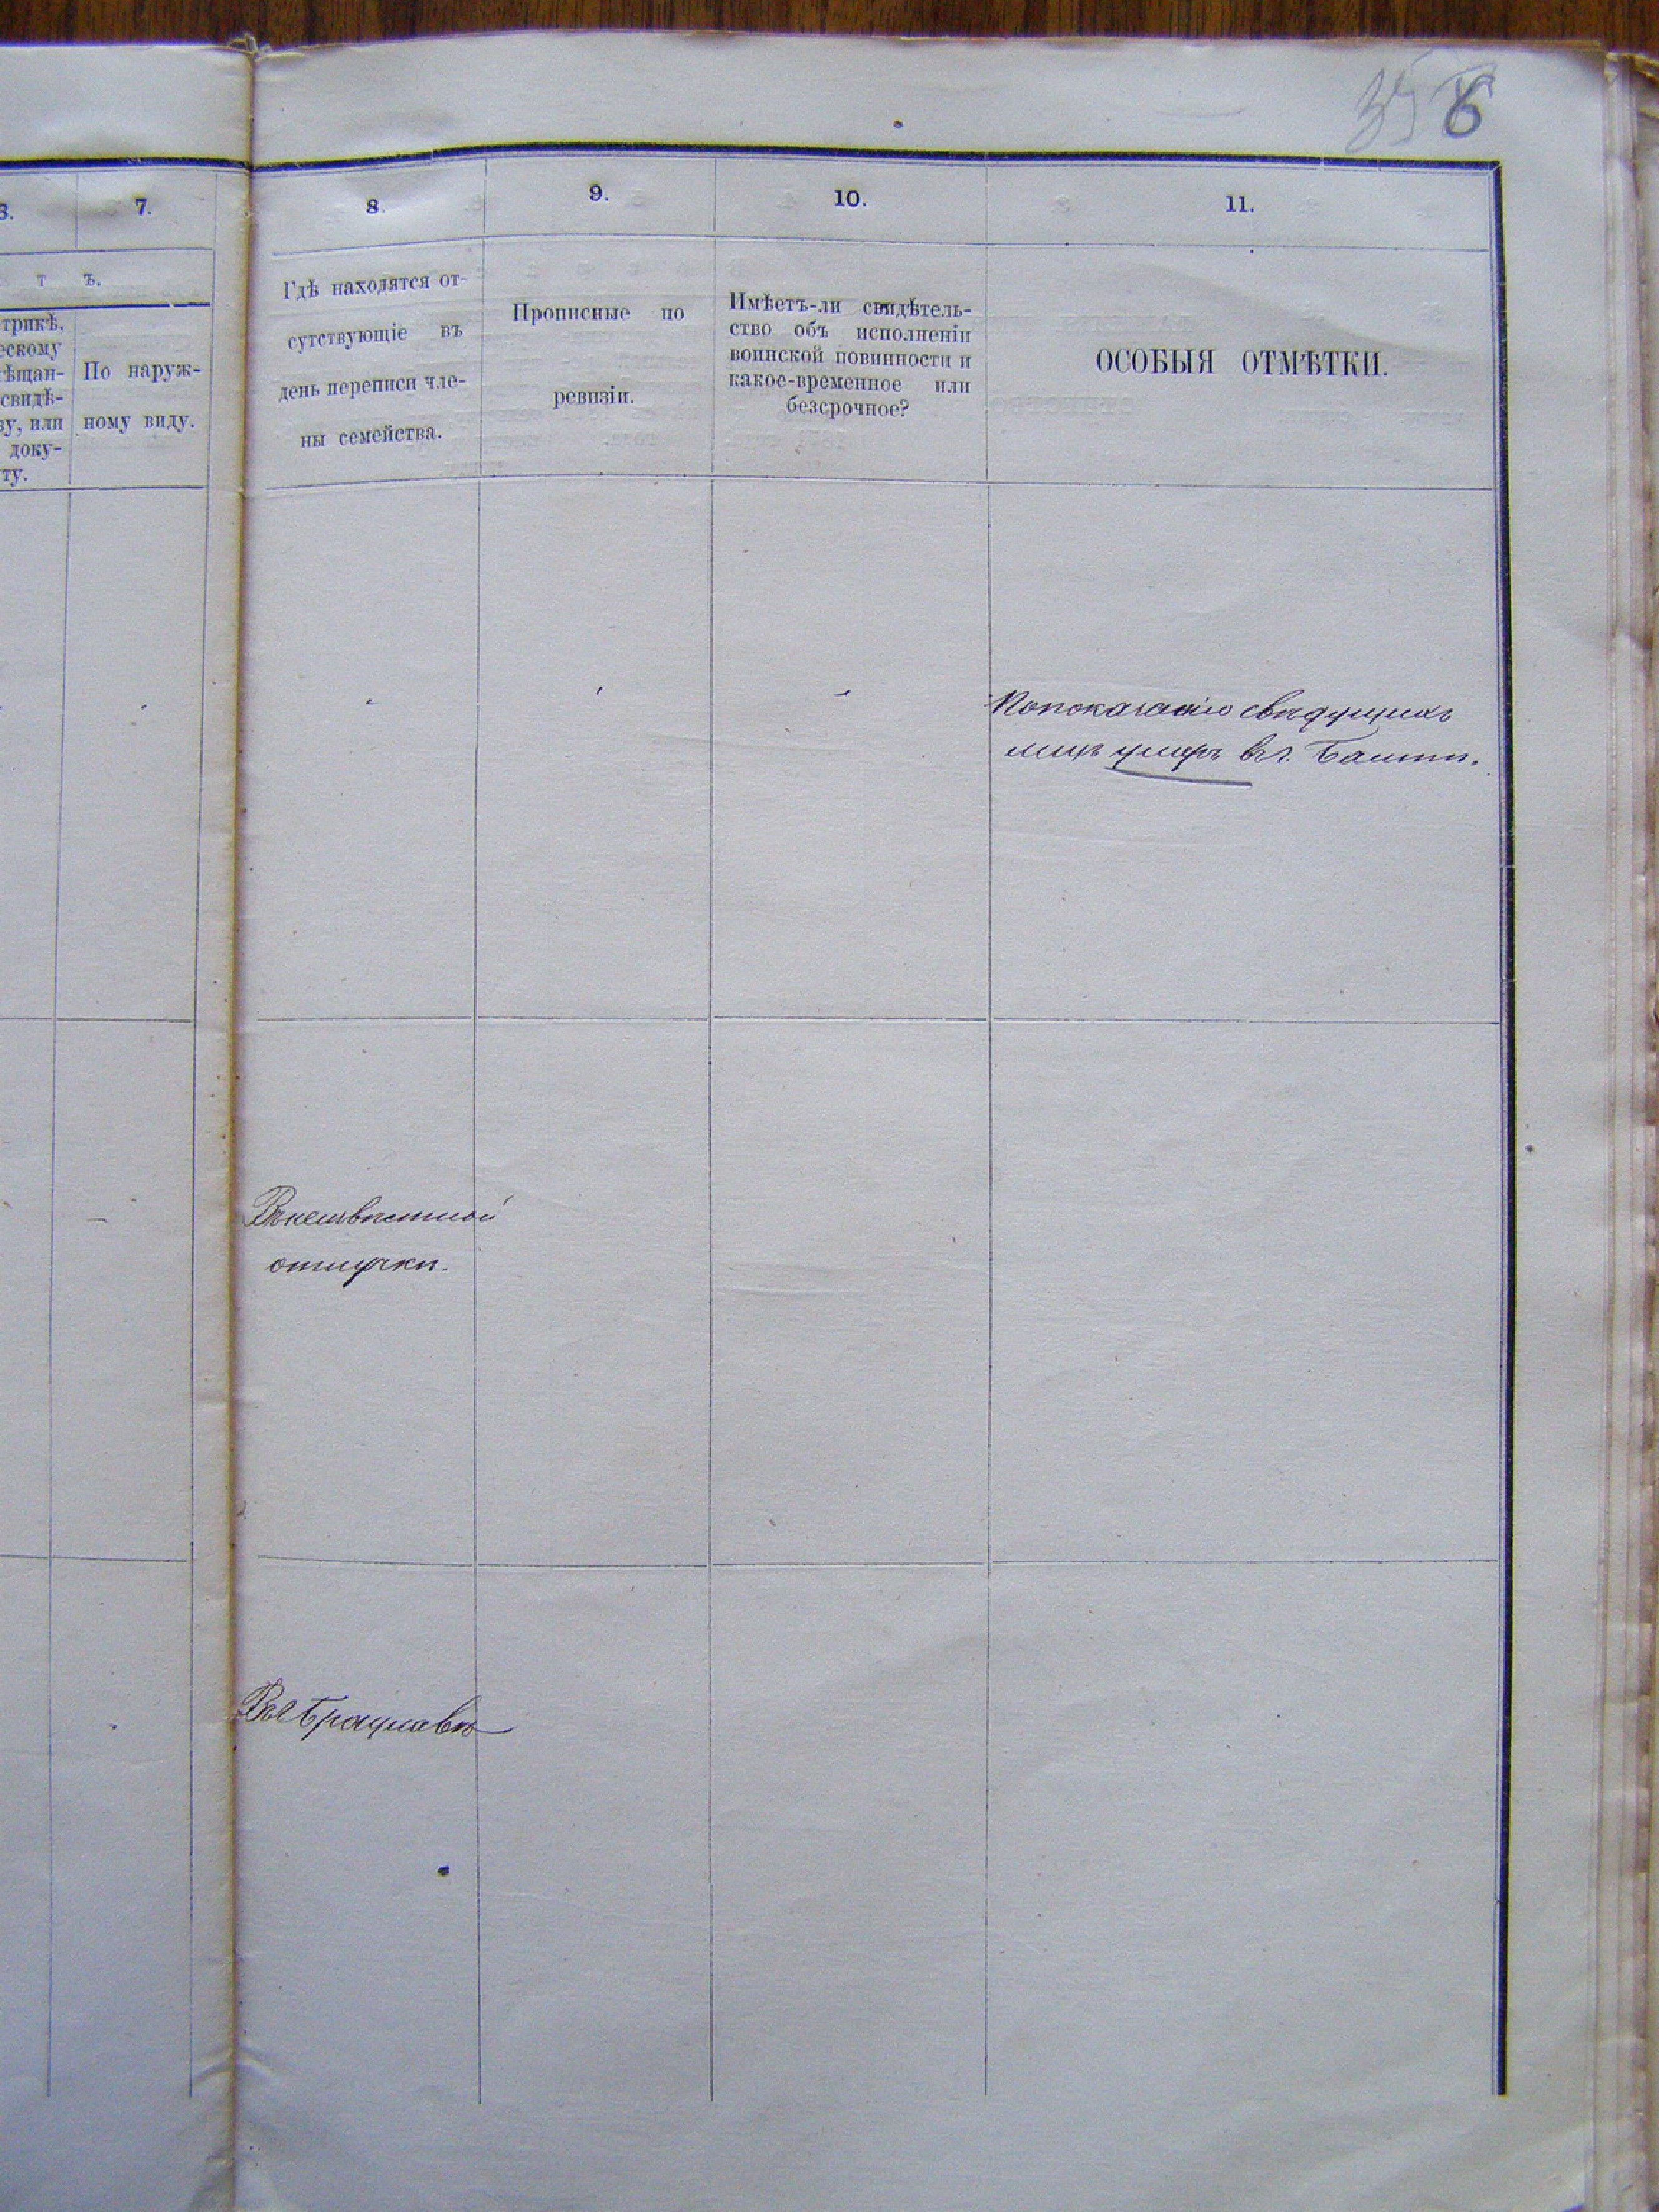 35 6
6.
7.
8.
9.
10.
11.
т ъ.
трикѣ,
ескому
ѣщан-
свидѣ-
ву, или
доку-
ту.
По наруж-
ному виду.
Гдѣ находятся от-
сутствующіе въ
день переписи чле-
ны семейства.
Прописные по
ревизіи.
Имѣетъ-ли свидѣтель-
ство объ исполненіи
воинской повинности и
какое-временное или
безсрочное?
ОСОБЫЯ ОТМѢТКИ.
По показанію свѣдущихъ
лицъ умеръ въ г. Балтѣ.
Въ неизвѣстной
отлучкѣ.
Въ г Брацлавѣ